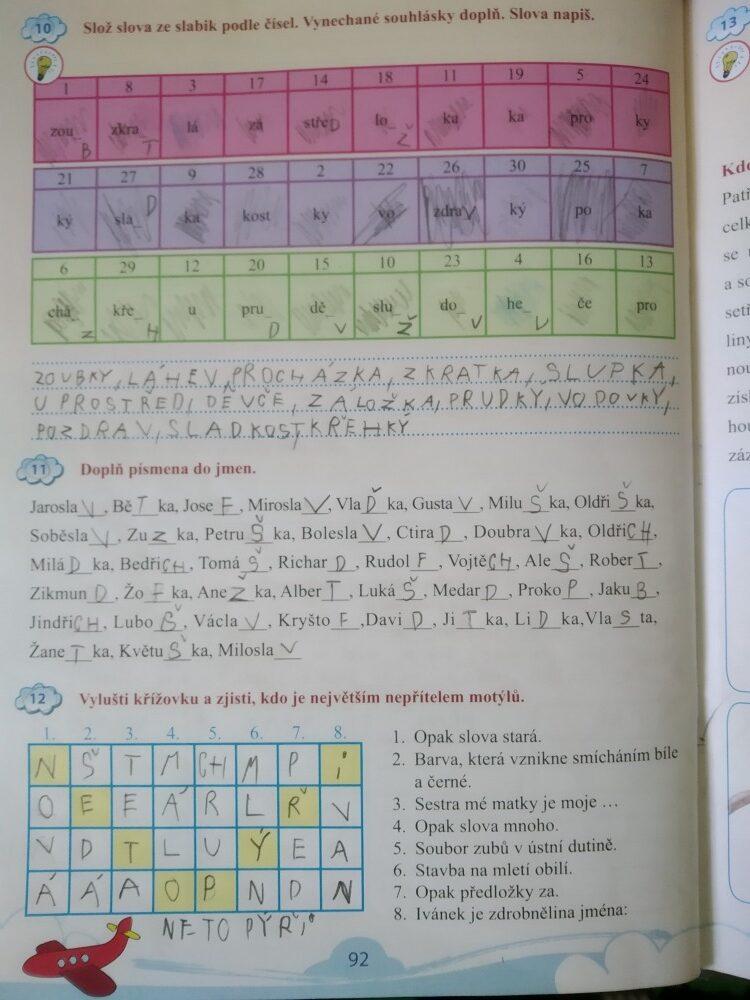 10 Slož slova ze slabik podle čísel. Vynechané souhlásky doplň. Slova napiš.
1 8 3 17 14 18 11 19 5 24
zou_B zkra_T lá zá střeD lo_Ž ku ka pro ky
21 27 9 28 2 22 26 30 25 7
ký sla_D ka kost ky vo zdraV ký po ka
6 29 12 20 15 10 23 4 16 13
chá_Z kře_H u pru_D dě_V slu_Ž do_V he_V če pro
ZOUBKY, LÁHEV, PROCHÁZKA, ZKRATKA, SLUPKA,
UPROSTŘED, DĚVČE, ZÁLOŽKA, PRUDKÝ, VODOVKY,
POZDRAV, SLADKOST KŘEHKÝ
11 Doplň písmena do jmen.
Jarosla V, Bě T ka, Jose F, Mirosla V, Vla Ď ka, Gusta V, Milu Š ka, Oldři Š ka,
Soběsla V, Zu Z ka, Petru Š ka, Bolesla V, Ctira D, Doubra V ka, Oldři CH,
Milá D ka, Bedři CH, Tomá Š, Richar D, Rudol F, Vojtě CH, Ale Š, Rober T,
Zikmun D, Žo F ka, Ane Ž ka, Alber T, Luká Š, Medar D, Proko P, Jaku B,
Jindři CH, Lubo Š, Václa V, Kryšto F, Davi D, Ji T ka, Li D ka, Vla S ta,
Žane T ka, Květu Š ka, Milosla V
12 Vylušti křížovku a zjisti, kdo je největším nepřítelem motýlů.
1. 2. 3. 4. 5. 6. 7. 8.
N Š T M CH M P I
O E E Á R L Ř V
V D T L U Ý E A
Á Á A O P N D N
NETOPÝŘI
1. Opak slova stará.
2. Barva, která vznikne smícháním bíle
a černé.
3. Sestra mé matky je moje …
4. Opak slova mnoho.
5. Soubor zubů v ústní dutině.
6. Stavba na mletí obilí.
7. Opak předložky za.
8. Ivánek je zdrobnělina jména:
92
13
Kdo
Patř
celk
se
a so
setř
liny
nou
získ
hou
záz